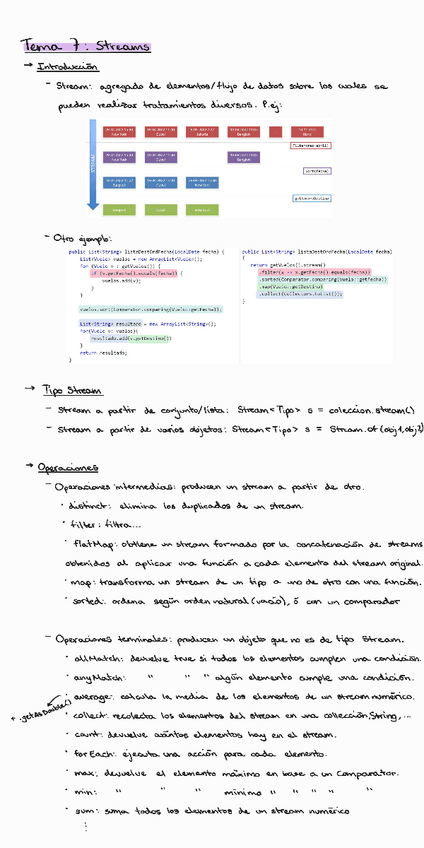 Tema 7: Streams
→ Introducción
- Stream: agregado de elementos/flujo de datos sobre los cuales se
pueden realizar tratamientos diversos. P.ej:
STREAM
- Otro ejemplo:
public List<String> listaDestOrdFecha(LocalDate fecha) {
List<Vuelo> vuelos = new ArrayList<Vuelo>();
for (Vuelo v : getVuelos()) {
if (v.getFecha().equals(fecha)) {
vuelos.add(v);
}
}
vuelos.sort(Comparator.comparing(Vuelo::getFecha));
List<String> resultado = new ArrayList<String>();
for(Vuelo v: vuelos){
resultado.add(v.getDestino());
}
return resultado;
public List<String> listaDestOrdFecha(LocalDate fecha)
{
return getVuelos().stream()
.filter(v -> v.getFecha().equals(fecha))
.sorted(Comparator.comparing(Vuelo::getFecha))
.map(Vuelo::getDestino)
.collect(Collectors.toList());
}
→ Tipo Stream
- Stream a partir de conjunto/lista: Stream<Tipo> s = coleccion.stream()
- Stream a partir de varios objetos: Stream<Tipo> s = Stream.of(obj1,obj2)
→ Operaciones
- Operaciones intermedias: producen un stream a partir de otro.
· distinct: elimina los duplicados de un stream.
· filter: filtra...
· flatMap: obtiene un stream formado por la concatenación de streams
obtenidos al aplicar una función a cada elemento del stream original.
· map: transforma un stream de un tipo a uno de otro con una función.
· sorted: ordena según orden natural (vacío), ó con un comparador
- Operaciones terminales: producen un objeto que no es de tipo Stream.
· allMatch: devuelve true si todos los elementos cumplen una condición.
· anyMatch: " " " algún elemento cumple una condición.
· average: calcula la media de los elementos de un stream numérico.
+ .getAsDouble()
· collect: recolecta los elementos del stream en una collección, String,...
· count: devuelve cuántos elementos hay en el stream.
· forEach: ejecuta una acción para cada elemento.
· max: devuelve el elemento máximo en base a un Comparator.
· min: " " " mínimo " " " "
· sum: suma todos los elementos de un stream numérico
⋮